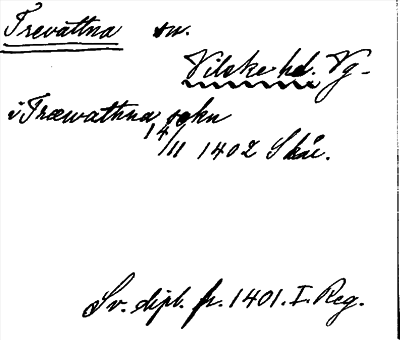 Trevattna sn.
Vilske hd. Vg-
i Træwathna sokn
14/11 1402 Skåe.
Sv. dipl. fr. 1401. I. Reg.